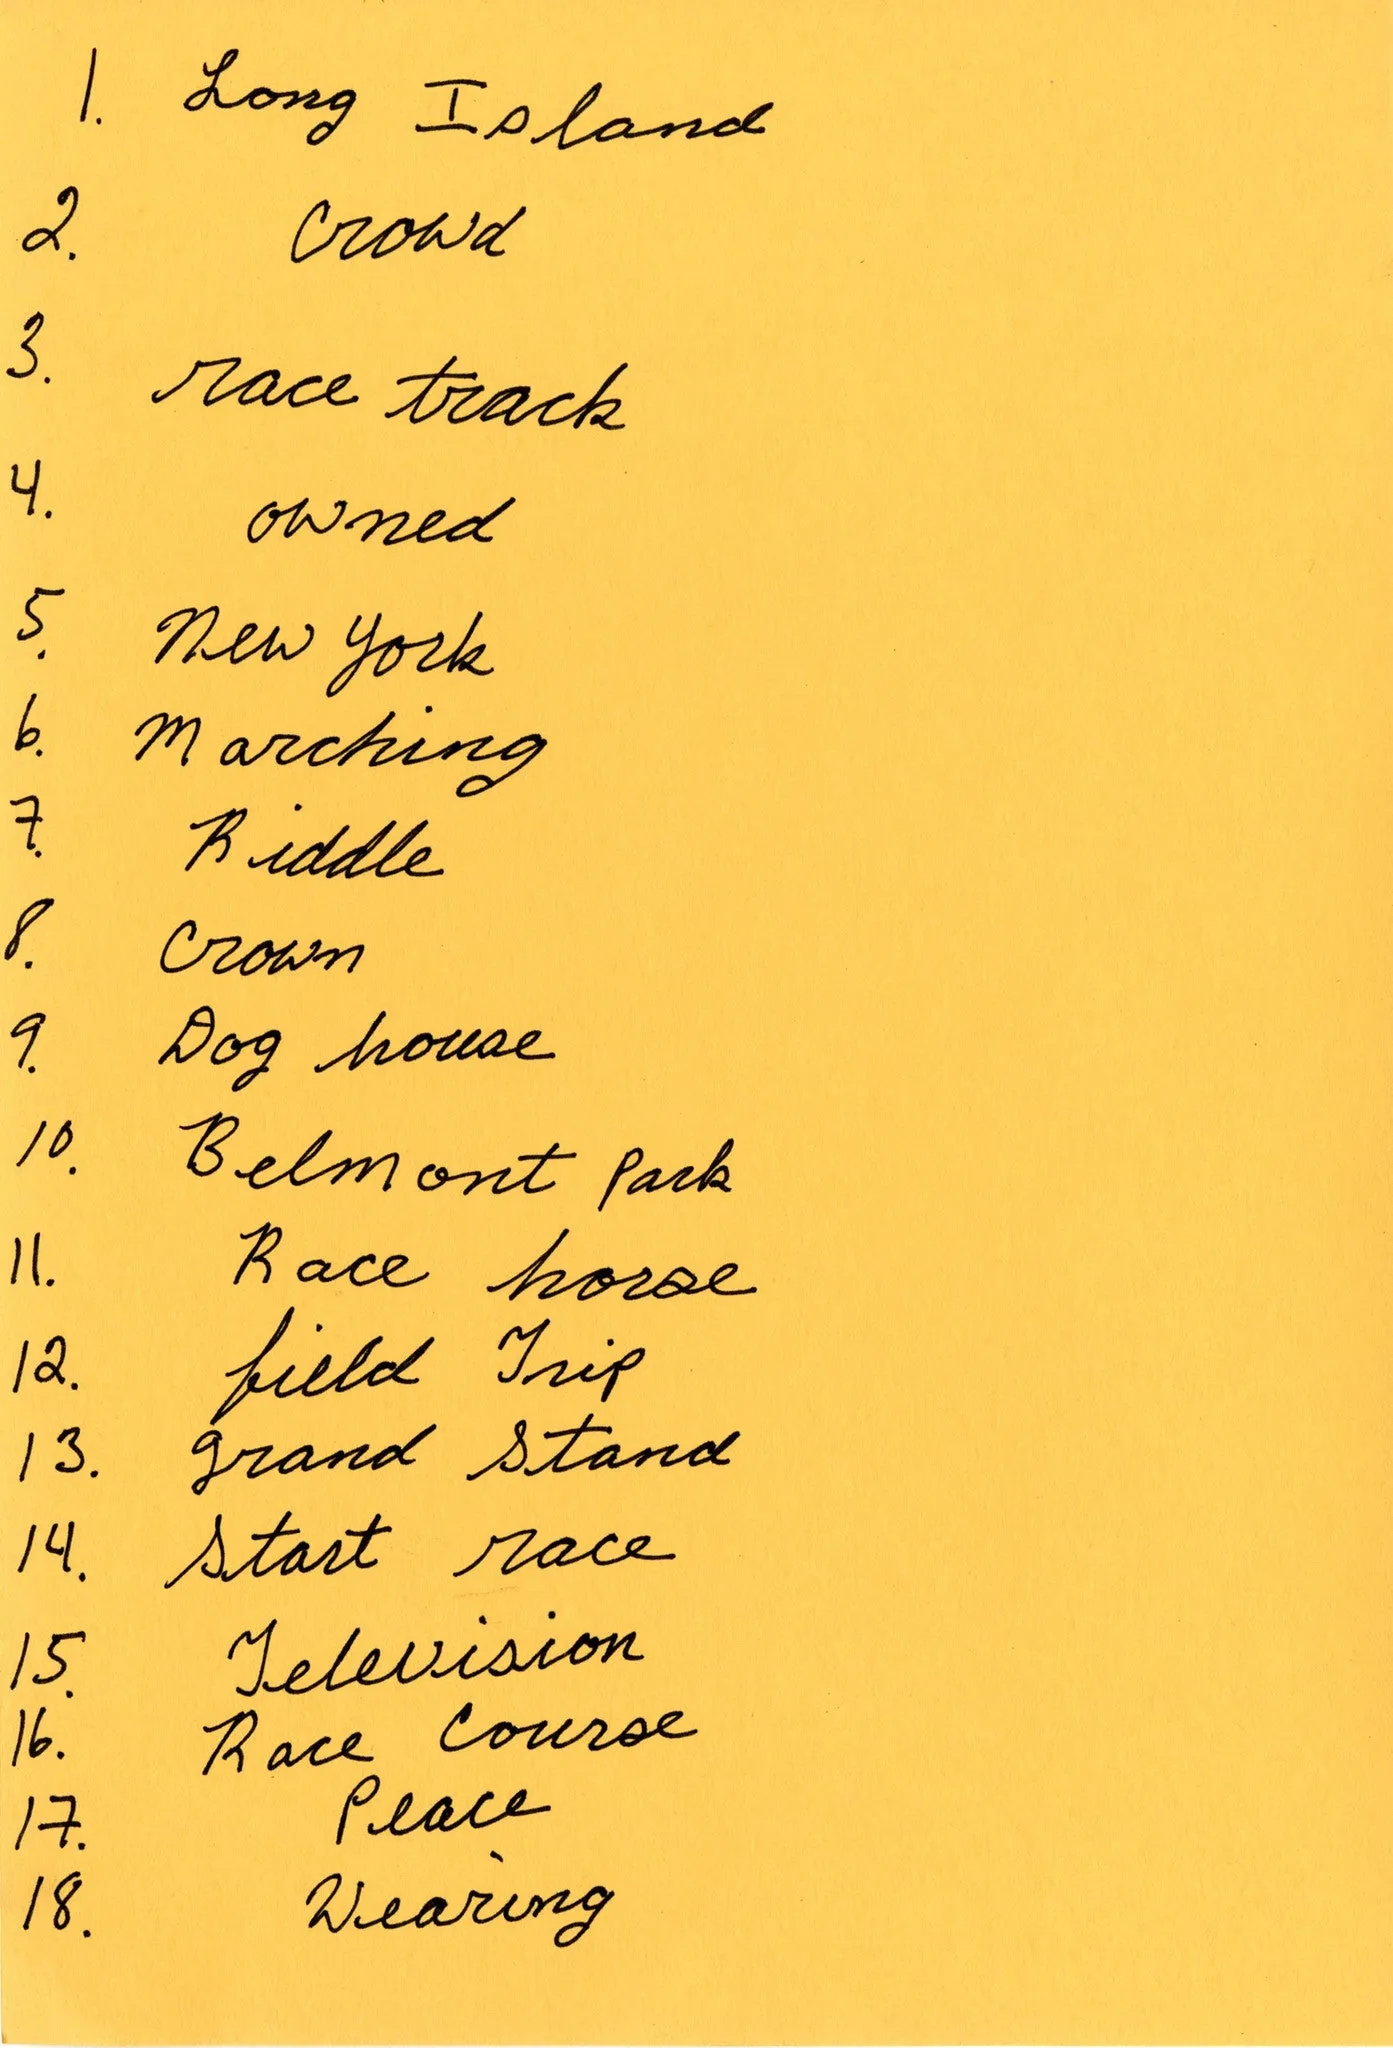 1. Long Island
2. Crowd
3. race track
4. owned
5. New York
6. Marching
7. Riddle
8. Crown
9. Dog house
10. Belmont Park
11. Race horse
12. field Trip
13. grand Stand
14. Start race
15. Television
16. Race Course
17. Peace
18. Wearing